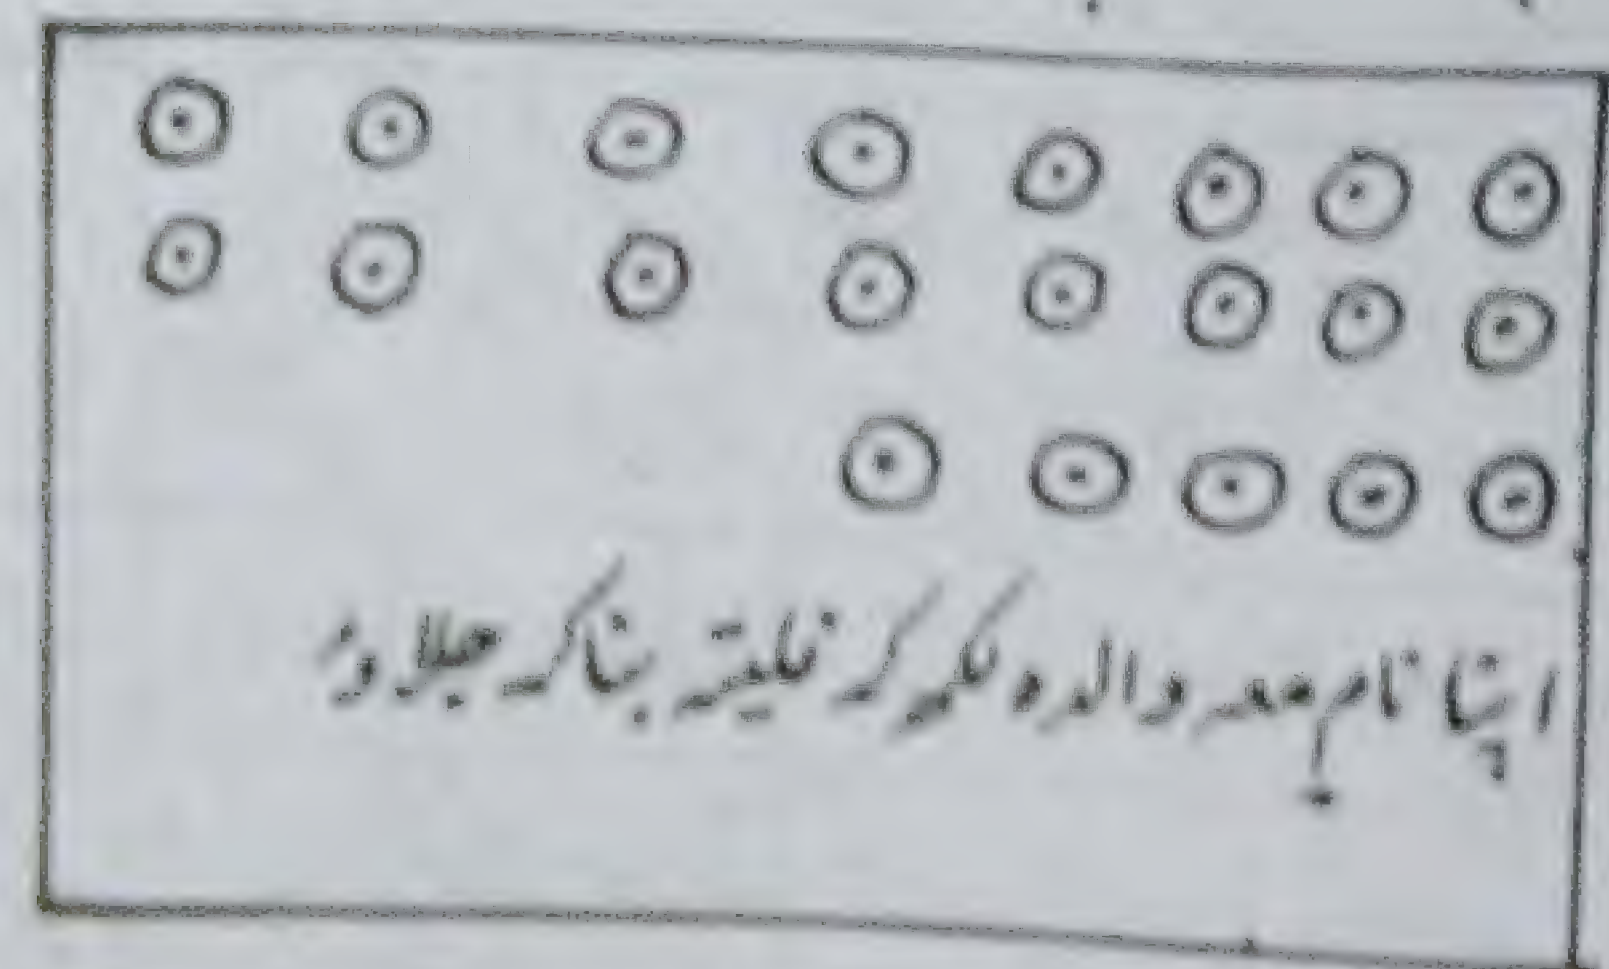 اپنا نام معہ والدہ لکھ کر فلیتہ بنا کر جلاوٰ